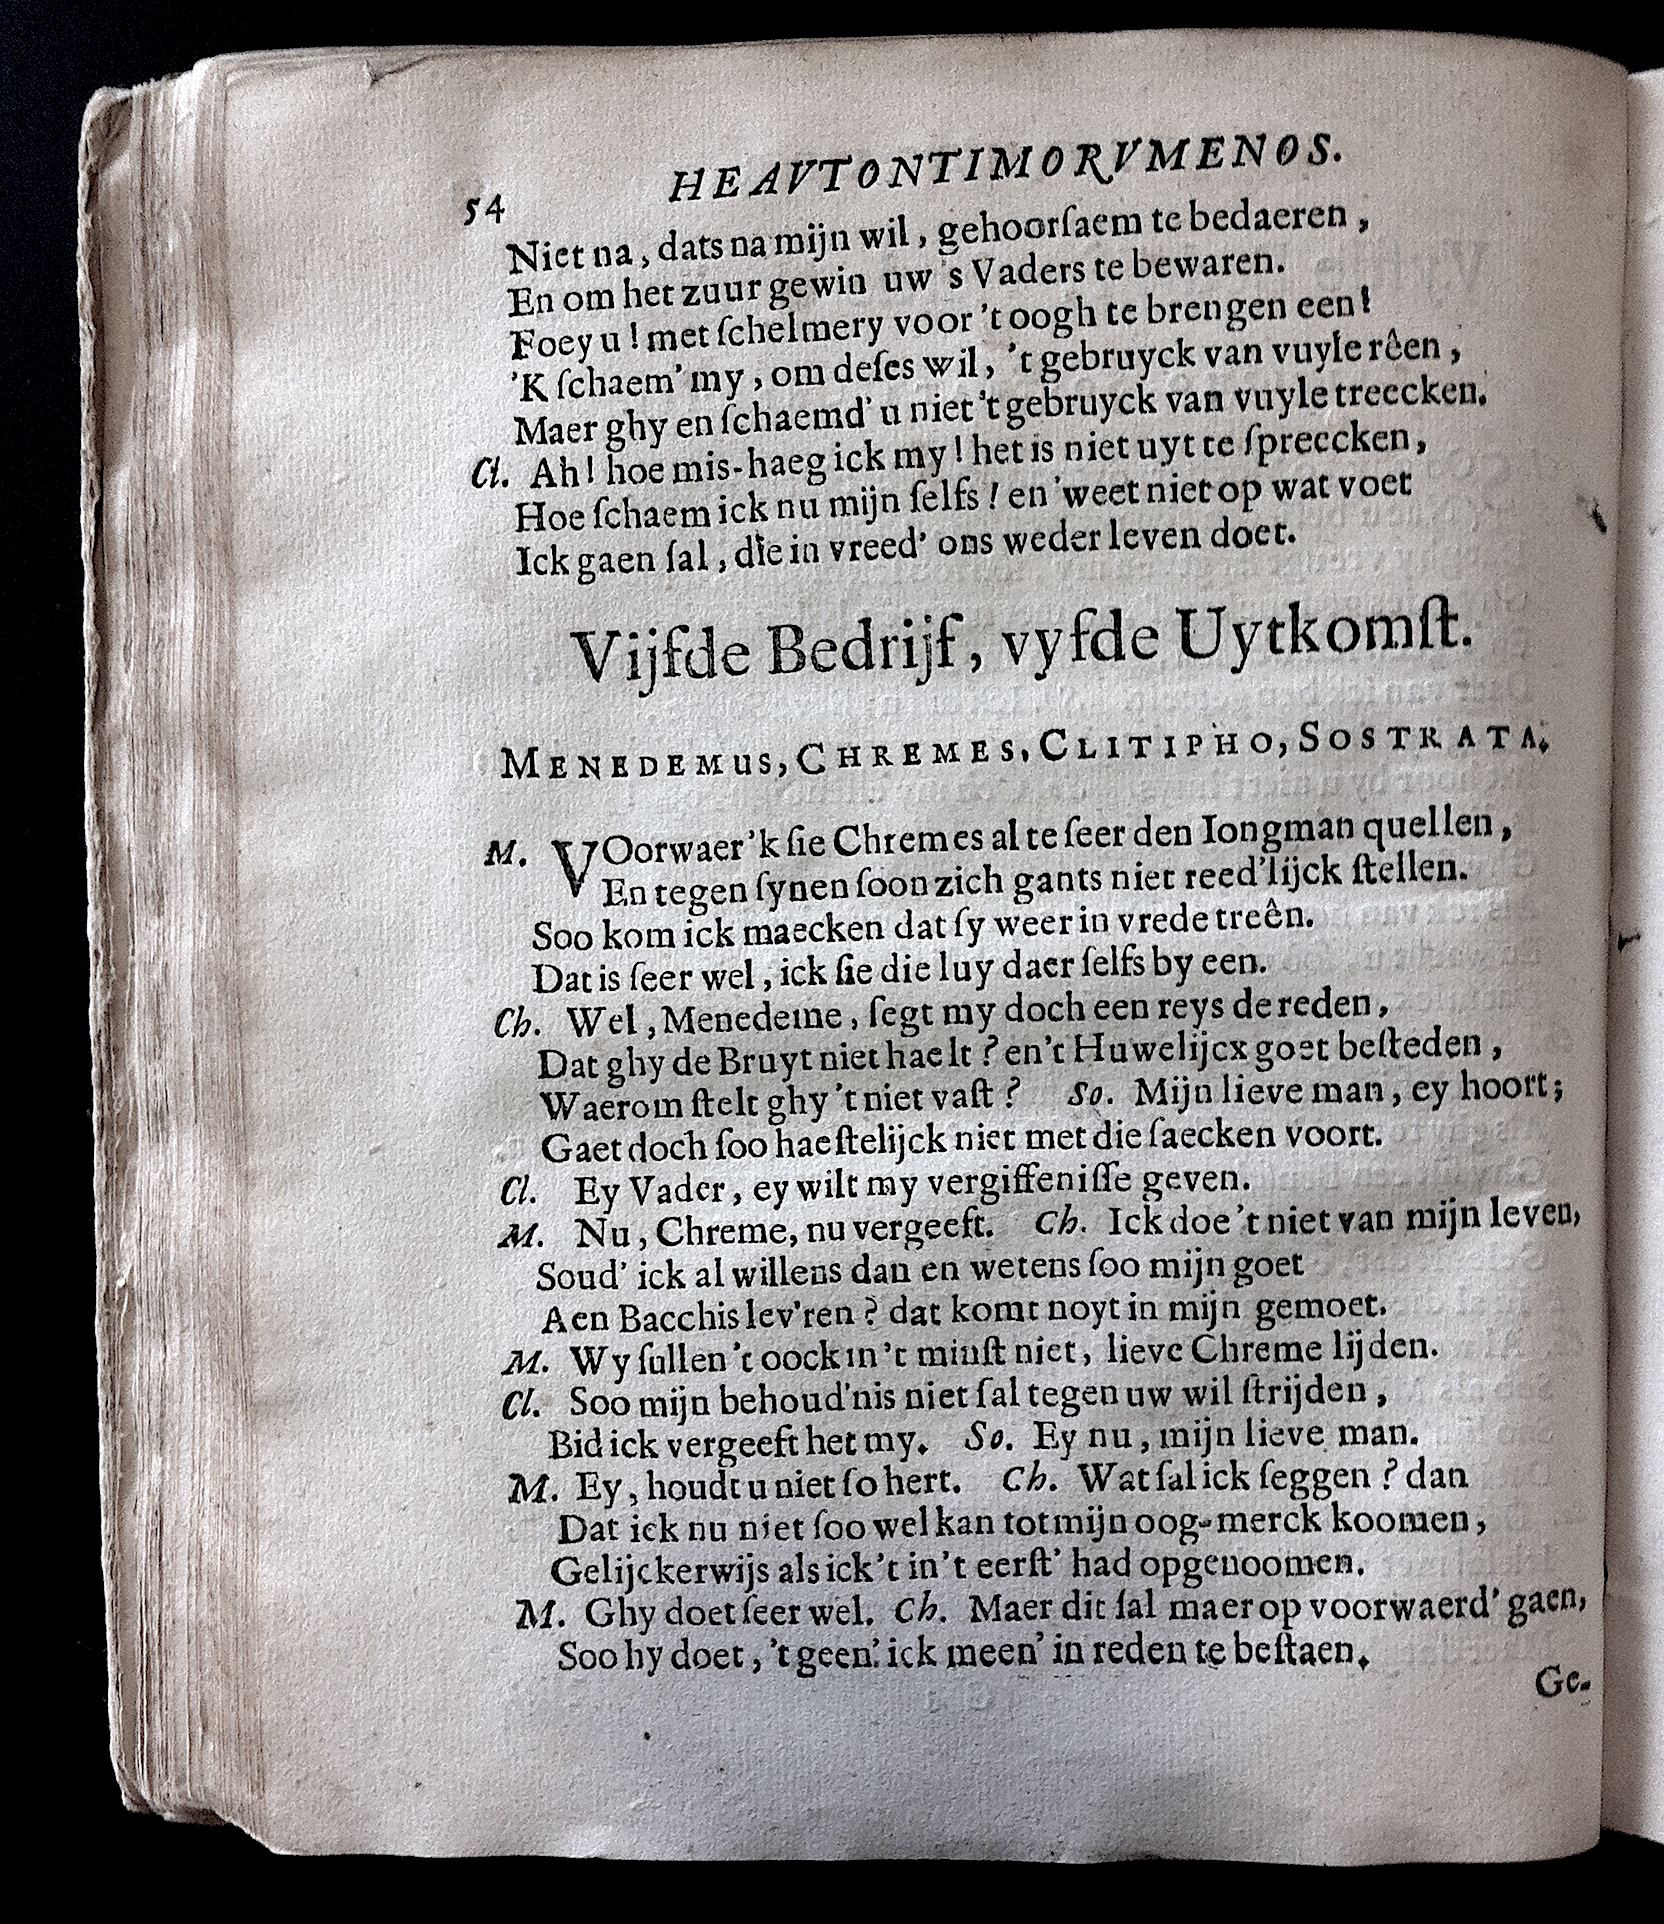 54 HEAVTONTIMORVMENOS.
Niet na, dats na mijn wil, gehoorſaem te bedaeren,
En om het zuur gewin uw 's Vaders te bewaren.
Foey u! met ſchelmery voor 't oogh te brengen een!
'K ſchaem' my, om deſes wil, 't gebruyck van vuyle rêen,
Maer ghy en ſchaemd' u niet 't gebruyck van vuyle treecken.
Cl. Ah! hoe mis-haeg ick my! het is niet uyt te ſpreecken,
Hoe ſchaem ick nu mijn ſelfs! en 'weet niet op wat voet
Ick gaen ſal, die in vreed' ons weder leven doet.
Vijfde Bedrijf, vyfde Uytkomſt.
MENEDEMUS, CHREMES, CLITIPHO, SOSTRATA.
M. VOorwaer 'k ſie Chremes al te ſeer den Iongman quellen,
En tegen ſynen ſoon zich gants niet reed'lijck ſtellen.
Soo kom ick maecken dat ſy weer in vrede treên.
Dat is ſeer wel, ick ſie die luy daer ſelfs by een.
Ch. Wel, Menedeme, ſegt my doch een reys de reden,
Dat ghy de Bruyt niet haelt? en't Huwelijcx goet beſteden,
Waerom ſtelt ghy 't niet vaſt? So. Mijn lieve man, ey hoort;
Gaet doch ſoo haeſtelijck niet met die ſaecken voort.
Cl. Ey Vader, ey wilt my vergiffeniſſe geven.
M. Nu, Chreme, nu vergeeft. Ch. Ick doe 't niet van mijn leven,
Soud' ick al willens dan en wetens ſoo mijn goet
Aen Bacchis lev'ren? dat komt noyt in mijn gemoet.
M. Wy ſullen 't oock in 't minſt niet, lieve Chreme lijden.
Cl. Soo mijn behoud'nis niet ſal tegen uw wil ſtrijden,
Bid ick vergeeft het my. So. Ey nu, mijn lieve man.
M. Ey, houdt u niet ſo hert. Ch. Wat ſal ick ſeggen? dan
Dat ick nu niet ſoo wel kan tot mijn oog-merck koomen,
Gelijckerwijs als ick 't in 't eerſt' had opgenoomen.
M. Ghy doet ſeer wel. Ch. Maer dit ſal maer op voorwaerd' gaen,
Soo hy doet, 't geen' ick meen' in reden te beſtaen.
Ge-